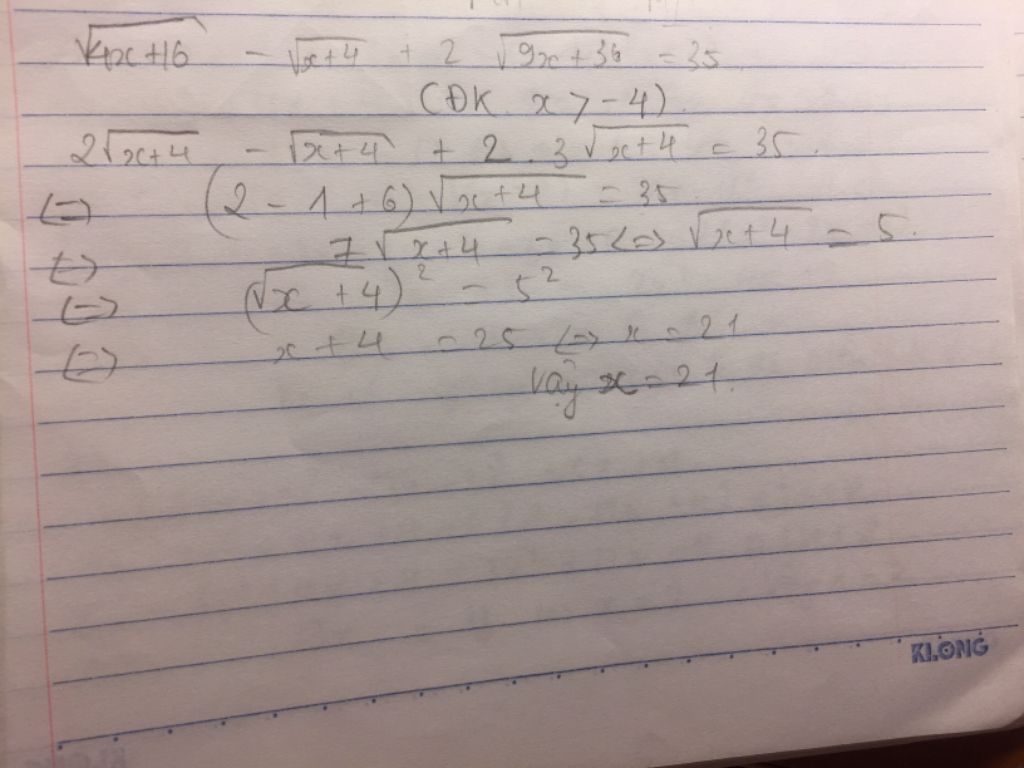 √4x+16 - √x+4 + 2 √9x+36 = 35
(ĐK x > -4)
2√x+4 - √x+4 + 2 . 3√x+4 = 35.
(=) (2 - 1 + 6) √x+4 = 35
(=) 7√x+4 = 35 <=> √x+4 = 5.
(=) (√x+4)² = 5²
(=) x+4 = 25 <=> x = 21
Vậy x = 21.
KLONG